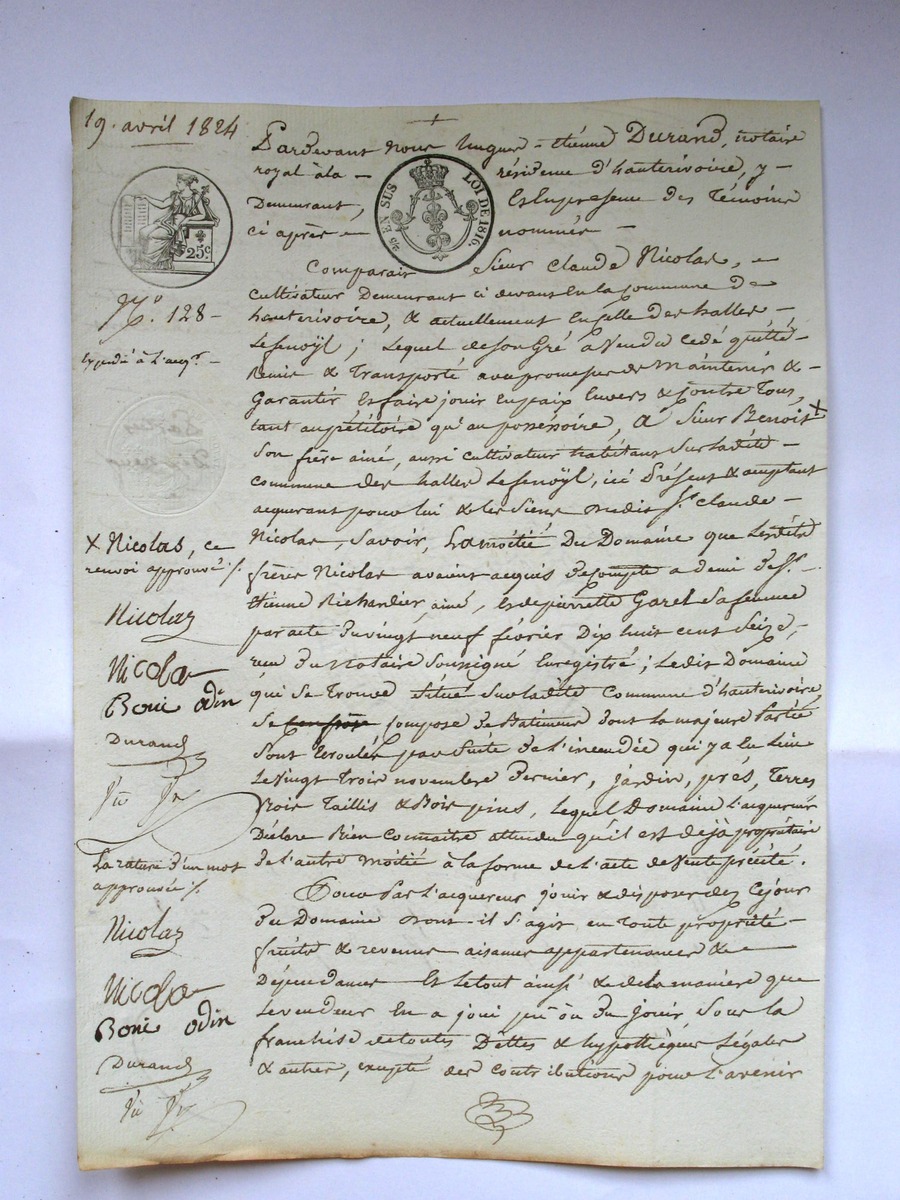 19. avril 1824
25c
25 EN SUS LOI DE 1816.
Pardevant nous hugues-étienne Durand, notaire
royal à la résidence d'hauterivoire, y
Demeurant, Et En presence Des Témoins
ci après nommés
Comparait Sieur claude Nicolas,
cultivateur Demeurant ci devant En la commune De
hauterivoire, & actuellement En celle des halles
Lefenoÿl; Lequel de son Gré a Vendu cedé quitté
Remis & Transporté avec promesse de Maintenir &
Garantir Et faire jouir En paix Envers & contre Tous,
tant au pétitoire qu'au possessoire, A Sieur Benoit X
Son frère ainé, aussi cultivateur habitant Sur ladite
commune des halles Lefenoÿl, ici Présent & acceptant
acquerant pour lui & les Siens dudit Sr. claude
Nicolas, Savoir, La moitié Du Domaine que Lesdits
frères Nicolas avaient acquis de compte a demi de Sr.
Etienne Richardier, ainé, Et de pierrette Garel Sa femme
par acte du vingt neuf février Dix huit cent Seize,
reçu du Notaire Soussigné Enregistré; Ledit Domaine
qui Se Trouve Situé Sur ladite Commune d'hauterivoire,
Se Compose de Batimens dont la majeure Partie
Sont Ecroulés par Suite de l'incendie qui y a Eu Lieu
Le Vingt Trois novembre Dernier, jardin, prés, Terres
Bois Taillis & Bois pins, Lequel Domaine l'acquereur
Déclare Bien Connaitre attendu qu'il est déjà propriétaire
de l'autre moitié à la forme de l'acte de Vente précité.
Pour Par l'acquereur jouir & disposer dès Cejour
du Domaine dont il S'agit en Toute propriété
fruits & revenus aisances appartenances &
Dépendances Et le tout ainsi & de la maniere que
Le vendeur En a joui pû ou du jouir Sous la
franchise de toutes Dettes & hypothèques Légales
& autres, excepté des Contributions pour l'avenir
No. 128
Expedié à L'acqr.
X Nicolas, ce
renvoi approuvé ./.
Nicolas
Nicolas
Boni odin
Durand
La rature d'un mot
approuvée ./.
Nicolas
Nicolas
Boni odin
Durand